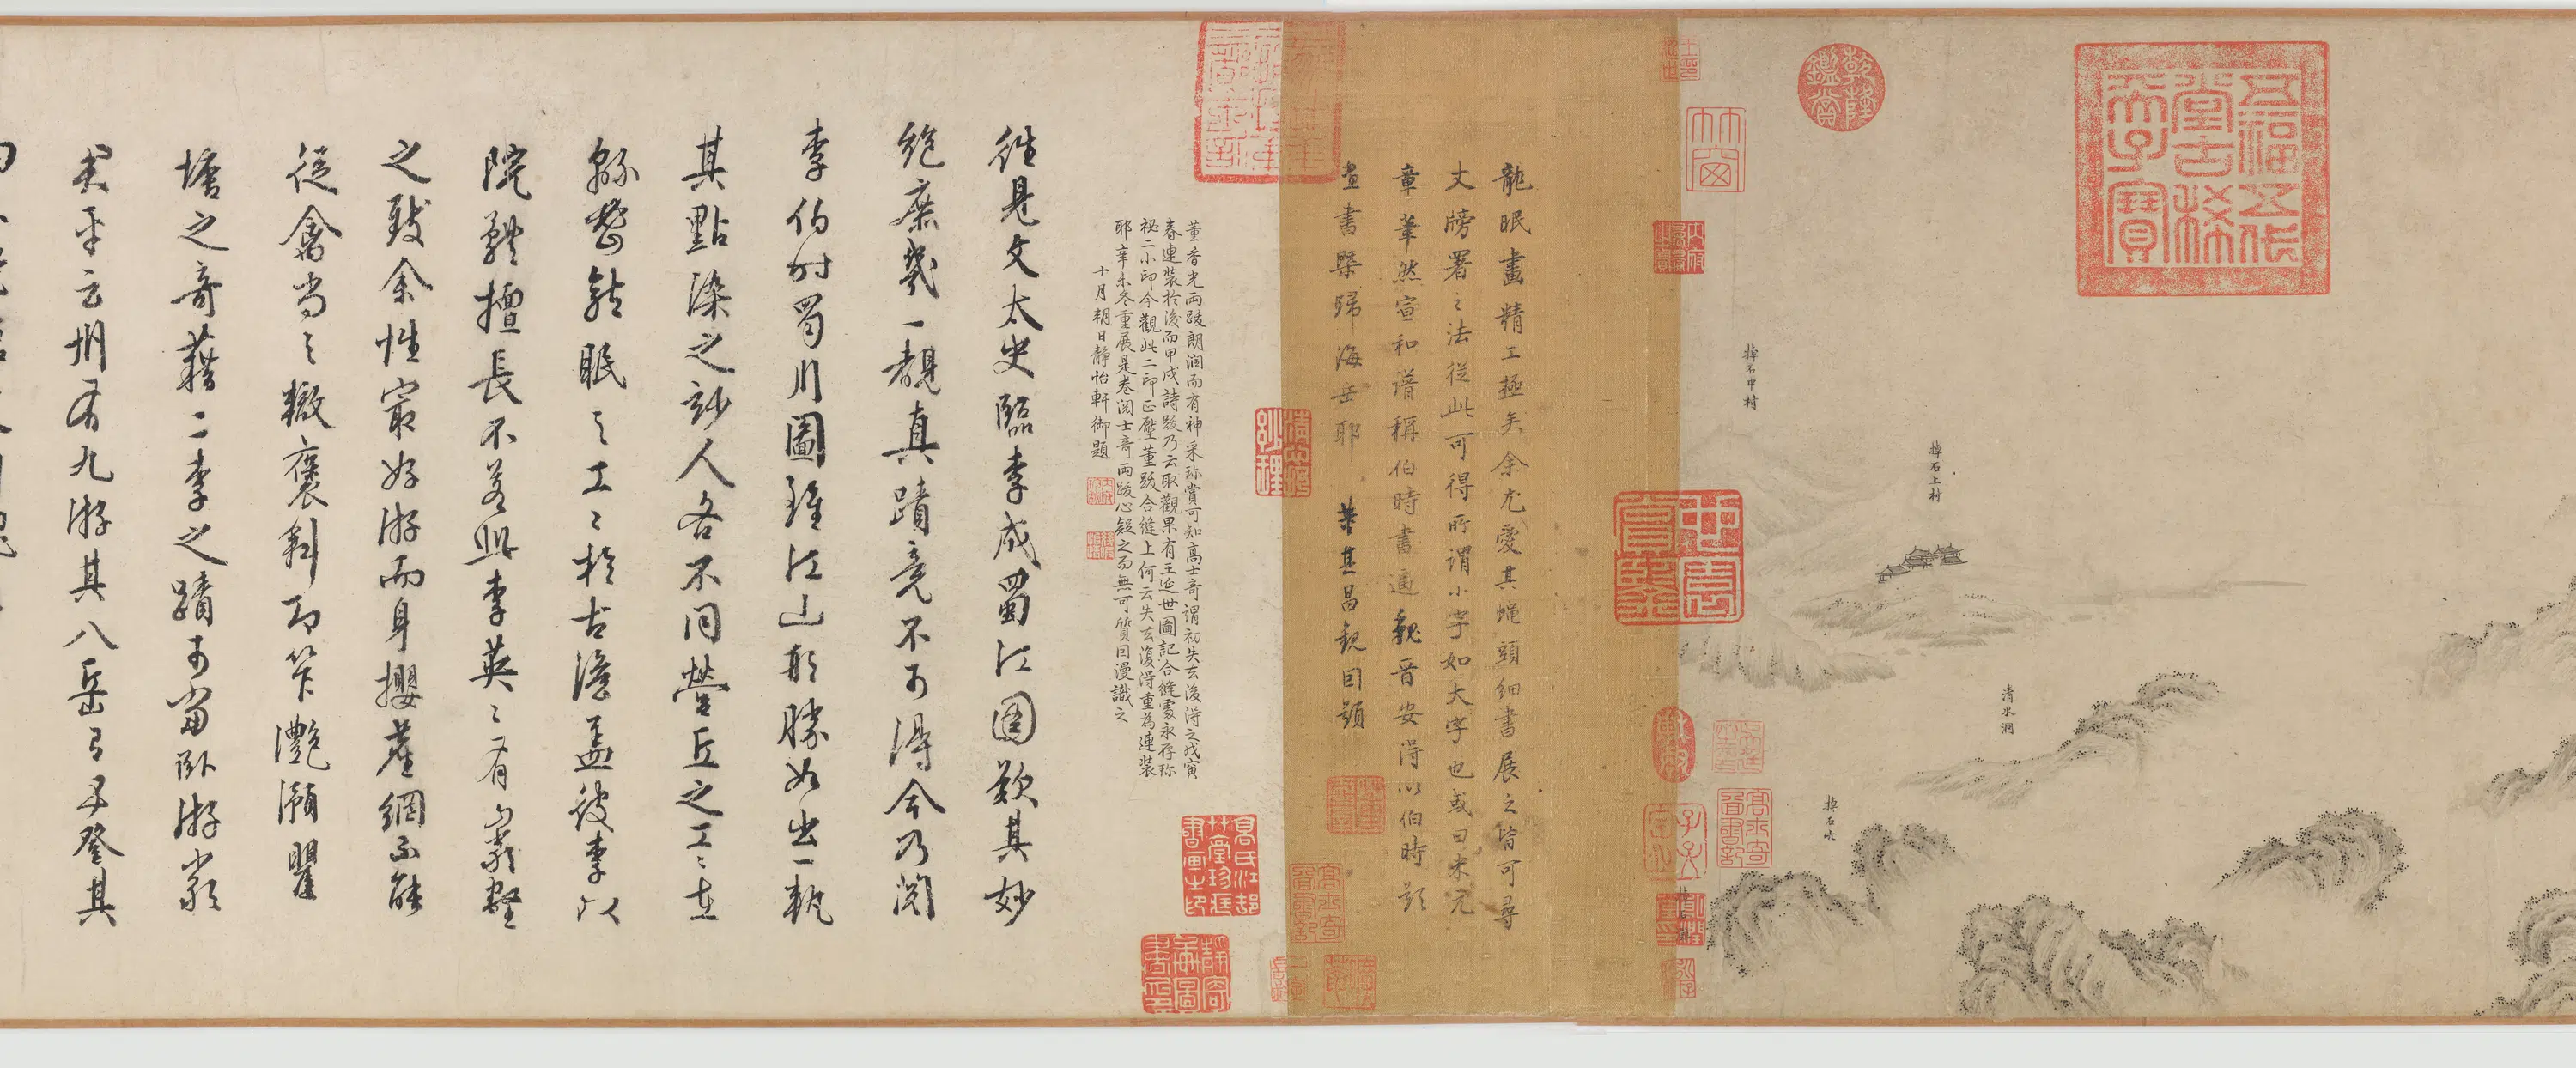 五福五代
堂古稀
天子寶
乾隆
鑑賞
掉石上村
清水洞
掉石中村
竹窗
龍眠畫精工極矣余尤愛其蠅頭細書展之皆可尋
丈牓署之法從此可得所謂小字如大字也或曰米元
章筆然宣和譜稱伯時書逼魏晉安得以伯時
畫書槩歸海岳耶 董其昌觀因題
董香光兩跋朗潤而有神采珎賞可知高士奇謂初失去後得之戊寅
春連裝於後而甲戌詩跋乃云取觀果有王延世圖記合縫處永存珎
祕二小印今觀此二印正壓董跋合縫上何云失去復得重為連裝
耶辛未冬重展是卷閱士奇兩跋心疑之而無可質因漫識之
十月朔日靜怡軒御題
往見文太史臨李成蜀江圖歎其妙
絕庶幾一覩真蹟竟不可得今乃閱
李伯時蜀川圖雖江山形勝如出一軌
其點染之妙人各不同營丘之工工在
緜密龍眠之工工於古澹蓋彼李以
院體擅長不若此李英英有丘壑
之致余性最好游而身攖塵網不能
從禽尚之轍褒斜邛笮灩澦瞿
塘之奇藉二李之蹟可當臥游少
文平云州有九游其八岳有五登其